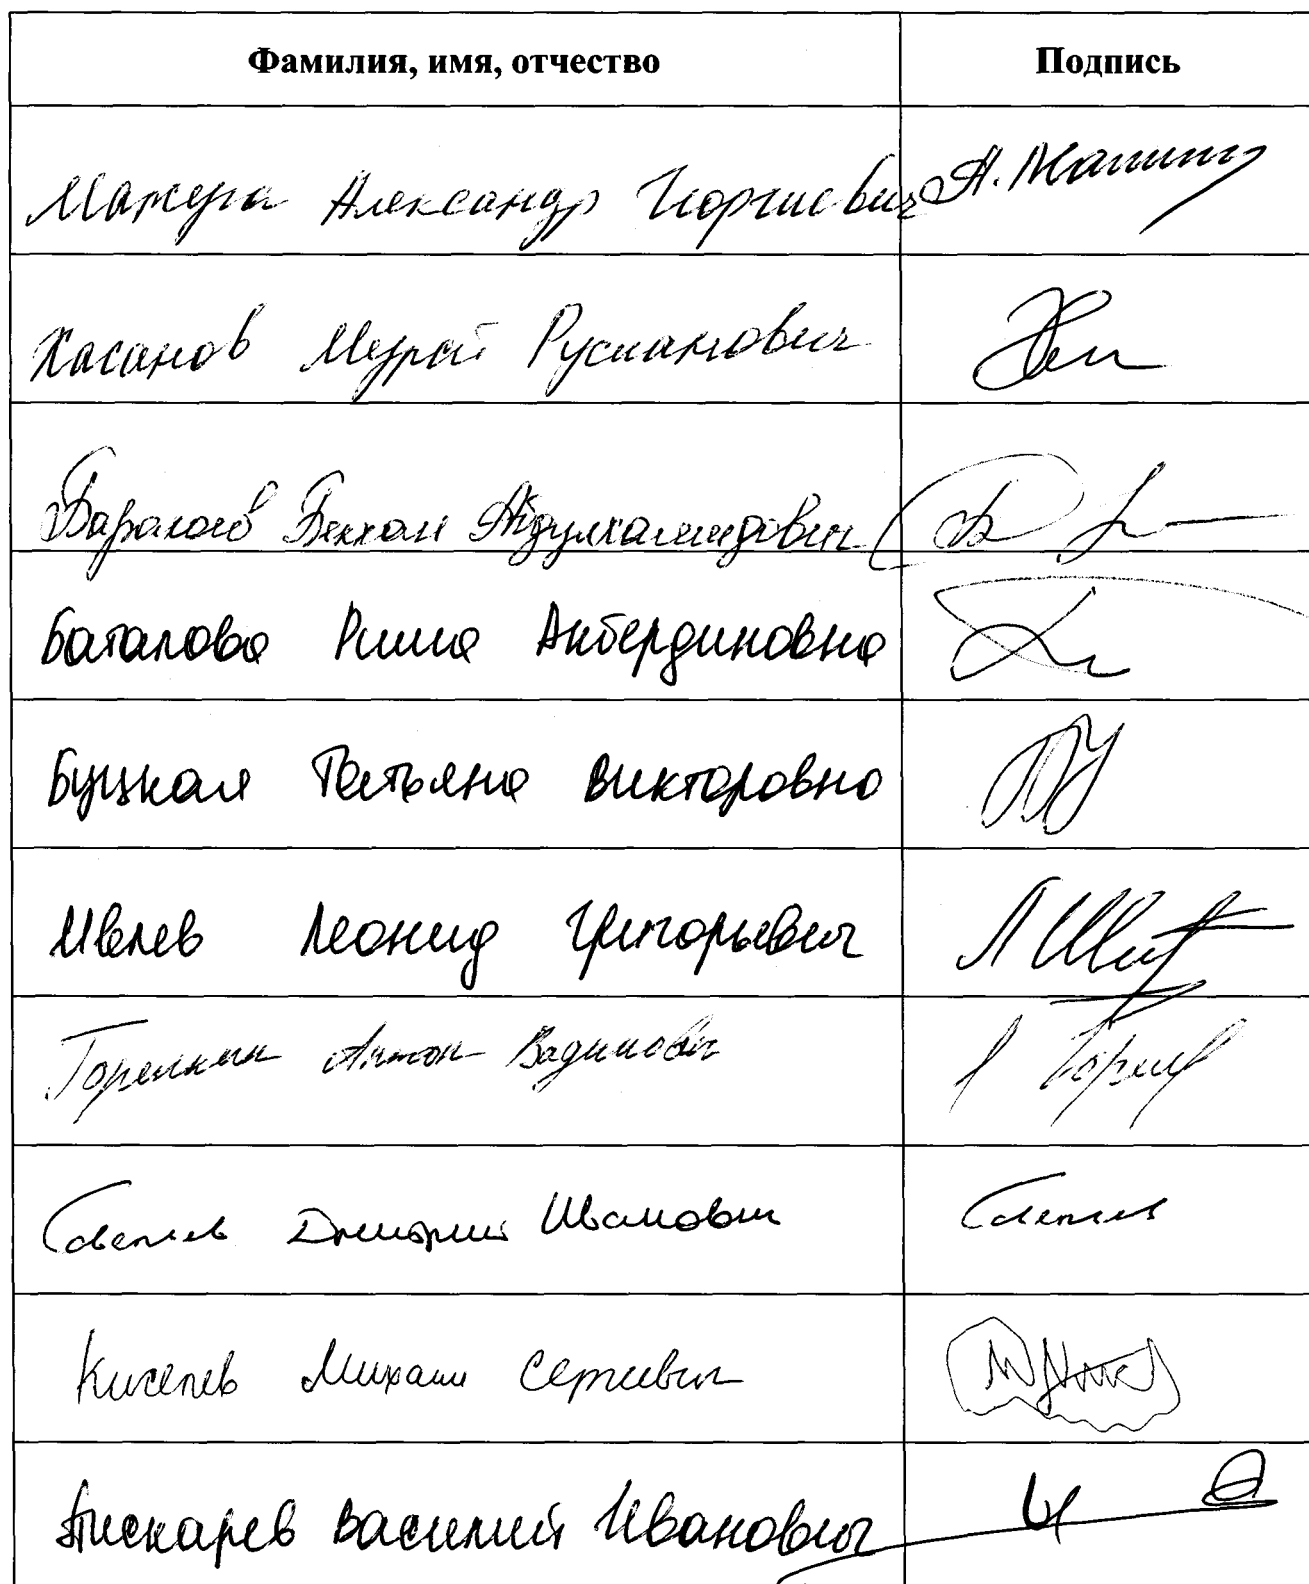 Фамилия, имя, отчество Подпись
Мажуга Александр Георгиевич
Хасанов Мурат Русланович
Бараков Бекхан Абдулхамидович
Баталова Рима Акбердиновна
Буцкая Татьяна Викторовна
Ивлев Леонид Григорьевич
Горелкин Антон Вадимович
Савельев Дмитрий Иванович
Киселев Михаил Сергеевич
Пискарев Василий Иванович